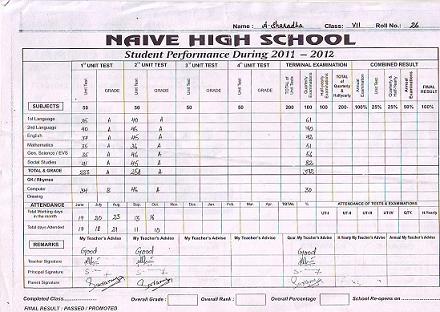 Name : A. Sharadha Class: VII Roll No.: 26
NAIVE HIGH SCHOOL
Student Performance During 2011 - 2012
1st UNIT TEST 2nd UNIT TEST 3rd UNIT TEST 4th UNIT TEST TERMINAL EXAMINATION COMBINED RESULT
Unit Test GRADE Unit Test GRADE Unit Test GRADE Unit Test GRADE TOTAL of Unit Tests Quarterly Examinations Half-yearly Examinations TOTAL of Quarterly & Halfyearly Annual Examinations Unit Test Quarterly & Half-yearly Annual Examinations FINAL RESULT
SUBJECTS 50 50 50 50 200 100 100 200 100% 25% 25% 50% 100%
1st Language 35 A 40 A 61
2nd Language 40 A 45 A 90
English 37 A 45 A
Mathematics 35 A 36 A 61
Gen. Science / EVS 35 A 46 A 66
Social Studies 41 A 45 A 82
TOTAL & GRADE 223 A 256 A
GK / Rhymes
Computer 34 B 46 A 30
Drawing
ATTENDANCE June July Aug. Sep. Oct. Nov. Dec. Jan. Feb. Mar. Apr. TOTAL % ATTENDANCE OF TESTS & EXAMINATIONS
Total Working days in the month 19 20 23 13 16 UT-I UT-II UT-III UT-IV QTX H.Yearly
Total days Attended 19 18 21 11 15
REMARKS My Teacher's Advise My Teacher's Advise My Teacher's Advise My Teacher's Advise Quar. My Teacher's Advise H.Yearly My Teacher's Advise Annual My Teacher's Advise
Good Good Good
Teacher Signature
Principal Signature
Parent Signature
Completed Class Overall Grade : Overall Rank : Overall Percentage School Re-opens on
FINAL RESULT : PASSED / PROMOTED